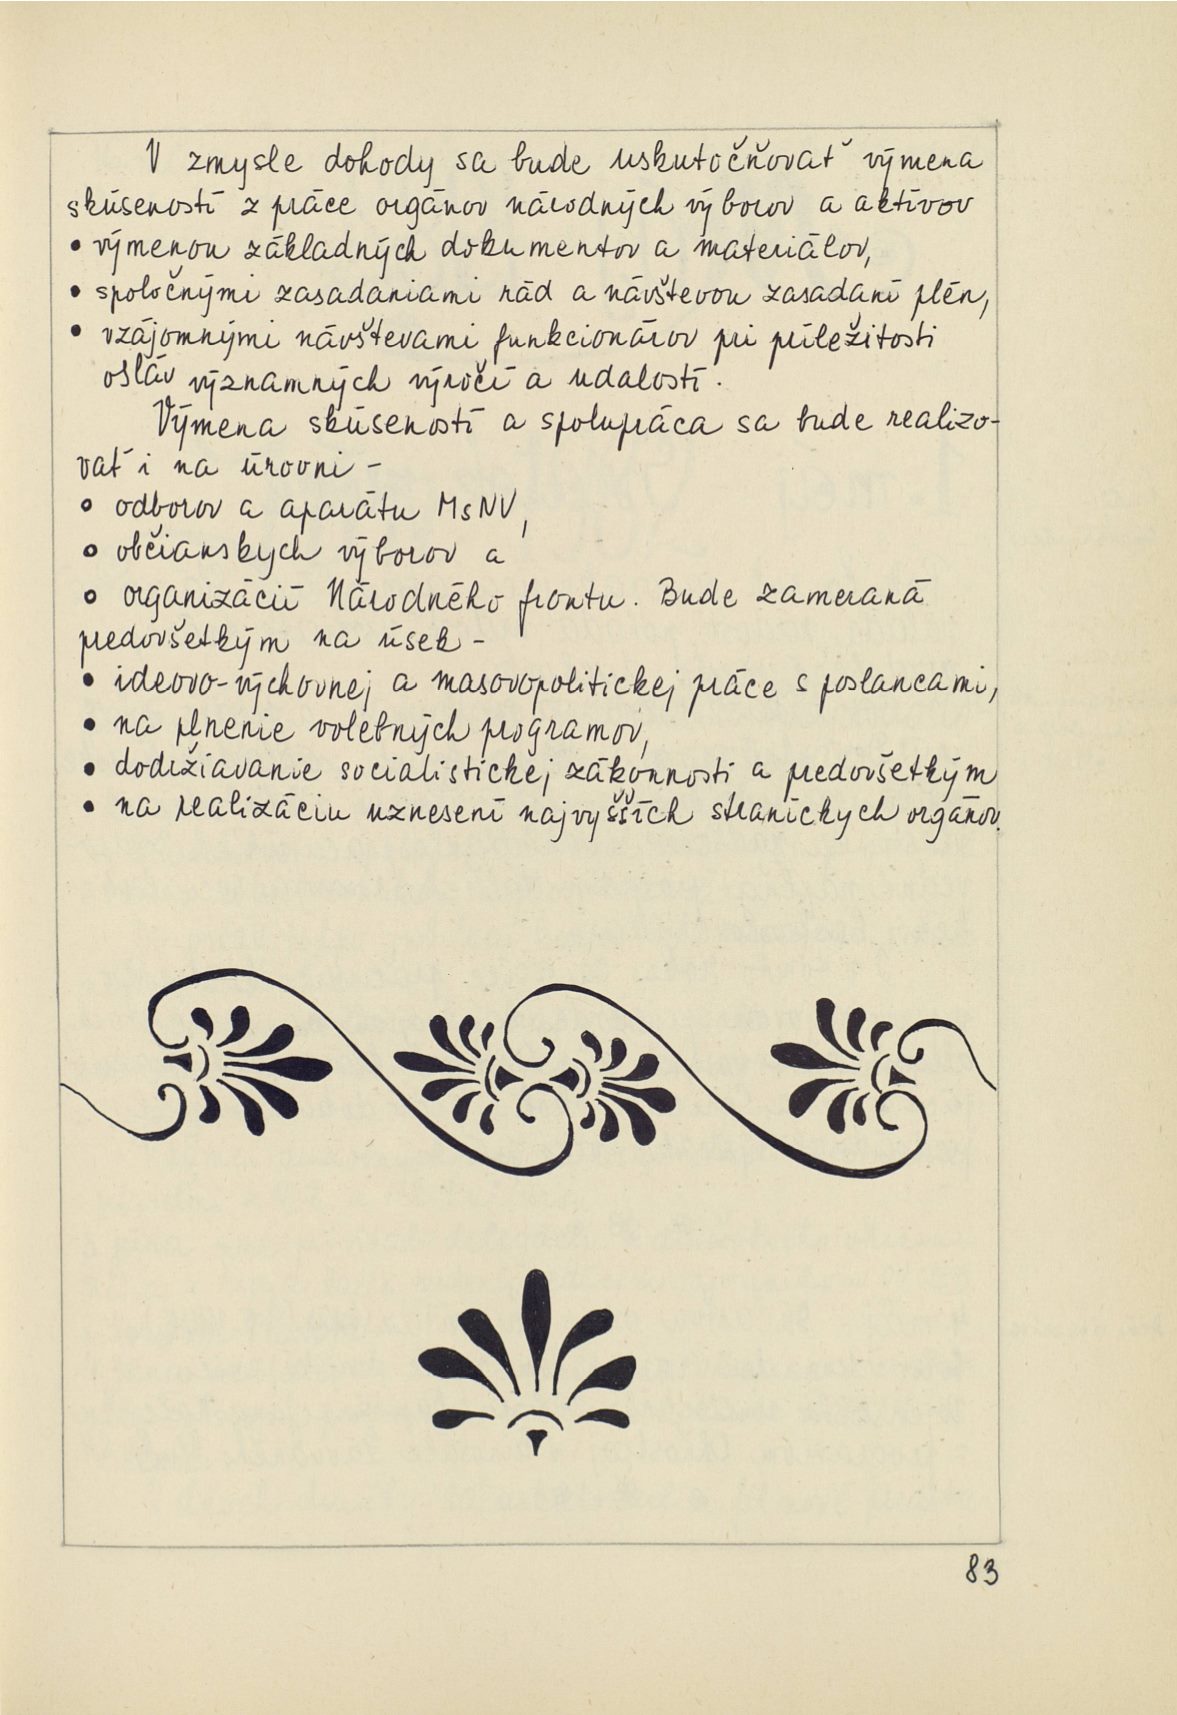 V zmysle dohody sa bude uskutočňovať výmena
skúseností z práce orgánov národných výborov a aktívov
• výmenou základných dokumentov a materiálov,
• spoločnými zasadaniami rád a návštevou zasadaní plén,
• vzájomnými návštevami funkcionárov pri príležitosti
osláv významných výročí a udalostí.
Výmena skúseností a spolupráca sa bude realizo-
vať i na úrovni -
o odborov a aparátu MsNV,
o občianskych výborov a
o organizácií Národného frontu. Bude zameraná
predovšetkým na úsek -
• ideovo-výchovnej a masovopolitickej práce s poslancami,
• na plnenie volebných programov,
• dodržiavanie socialistickej zákonnosti a predovšetkým
• na realizáciu uznesení najvyšších straníckych orgánov.
83